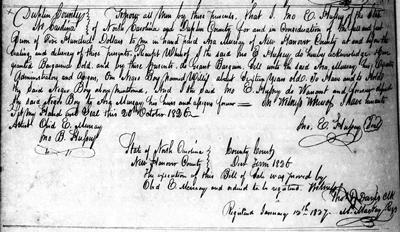 Duplin County } Know all Men by these presents, that I Jno E. Hussey of the State
No Carolina } of North Carolina and Duplin County for and in Consideration of the
Sum of Five Hundred Dollars to me in hand paid Asa Murray of New Hanover County at and before the
Sealing and delivery of these presents, Receipt Whereof I the said Jno E. Hussey do hereby acknowledge
granted Bargained Sold, and by these presents do Grant Bargain Sell unto the said Asa Murray his
Administrators and Assigns, One Negro Boy Named about Sixteen years old. To Have and to Hold
the said Negro Boy And I the said Jno E. Hussey do Warrant and forever defend
the said Negro Boy to Asa Murray his heirs and assigns forever In Witness Whereof I have hereunto
Set my Hand and Seal this 20th October 1826
Attest Obid E. Murray
Jno B. Hussey
Jno. E. Hussey Seal
State of North Carolina } County Court
New Hanover County } Term 1826
The execution of this Bill of Sale was proved by
Obid E. Murray and ordered to be registered. Witness
Clk
Registered January 12th 1827. Regs